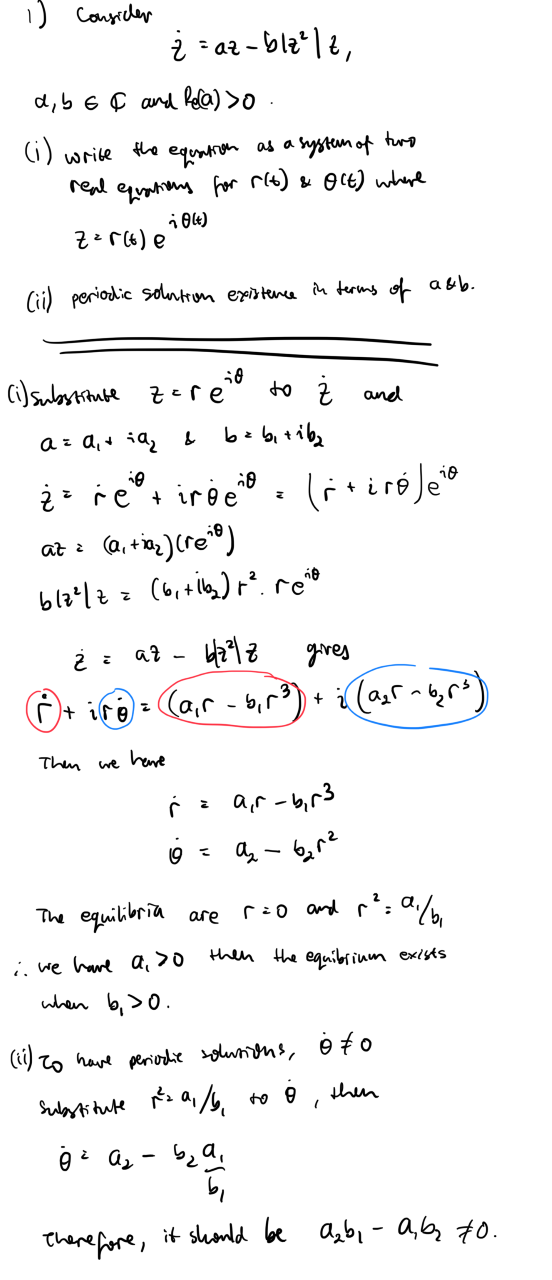 1) Consider
ż = az - b|z²|z,
a, b ∈ ℂ and Re(a) > 0.
(i) write the equation as a system of two
real equations for r(t) & θ(t) where
z = r(t) e^{iθ(t)}
(ii) periodic solution existence in terms of a & b.
(i) substitute z = r e^{iθ} to ż and
a = a₁ + ia₂ & b = b₁ + ib₂
ż = ṙ e^{iθ} + i r θ̇ e^{iθ} = (ṙ + i r θ̇) e^{iθ}
az = (a₁ + ia₂)(r e^{iθ})
b|z²|z = (b₁ + ib₂) r² . r e^{iθ}
ż = az - b|z²|z gives
ṙ + i r θ̇ = (a₁r - b₁r³) + i (a₂r - b₂r³)
Then we have
ṙ = a₁r - b₁r³
θ̇ = a₂ - b₂r²
The equilibria are r = 0 and r² = a₁/b₁
∴ we have a₁ > 0 then the equibrium exists
when b₁ > 0.
(ii) To have periodic solutions, θ̇ ≠ 0
substitute r² = a₁/b₁ to θ̇, then
θ̇ = a₂ - b₂ a₁/b₁
Therefore, it should be a₂b₁ - a₁b₂ ≠ 0.